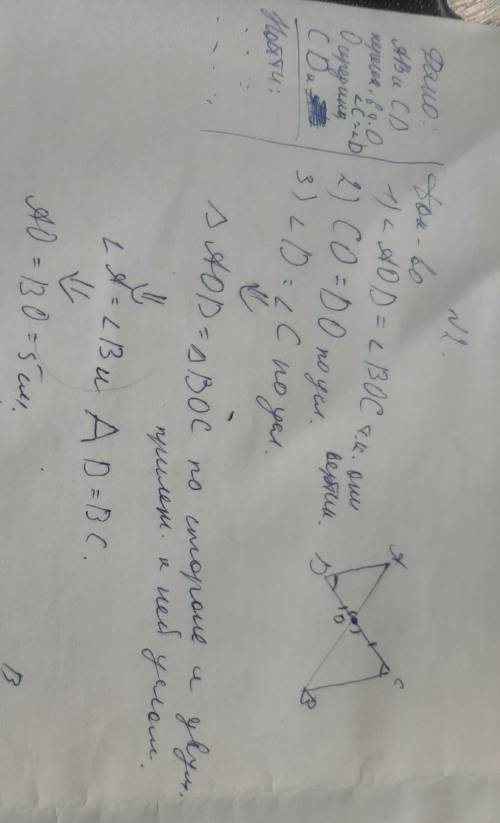 №1.
Дано:
AB и CD
перес. в т. O
∠C=∠D
O середина
CD и
Найти:
Док-во
1) ∠AOD = ∠BOC т.к. они
вертик.
2) CO = DO по усл.
3) ∠D = ∠C по усл.
⇓
△AOD = △BOC по стороне и двум
прилеж. к ней углам.
⇓
∠A = ∠B и AD = BC.
⇓
AO = BO = 5 см.
A
D
O
C
B
B